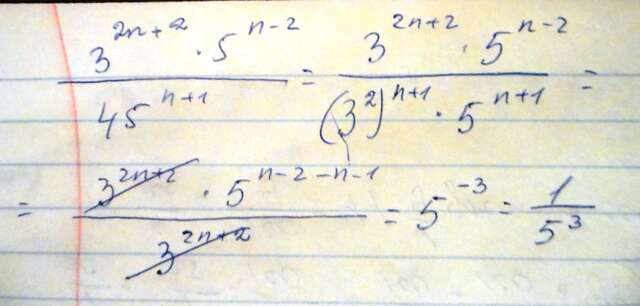 \frac{3^{2n+2} \cdot 5^{n-2}}{45^{n+1}} = \frac{3^{2n+2} \cdot 5^{n-2}}{(3^2)^{n+1} \cdot 5^{n+1}} =
= \frac{3^{2n+2} \cdot 5^{n-2-n-1}}{3^{2n+2}} = 5^{-3} = \frac{1}{5^3}